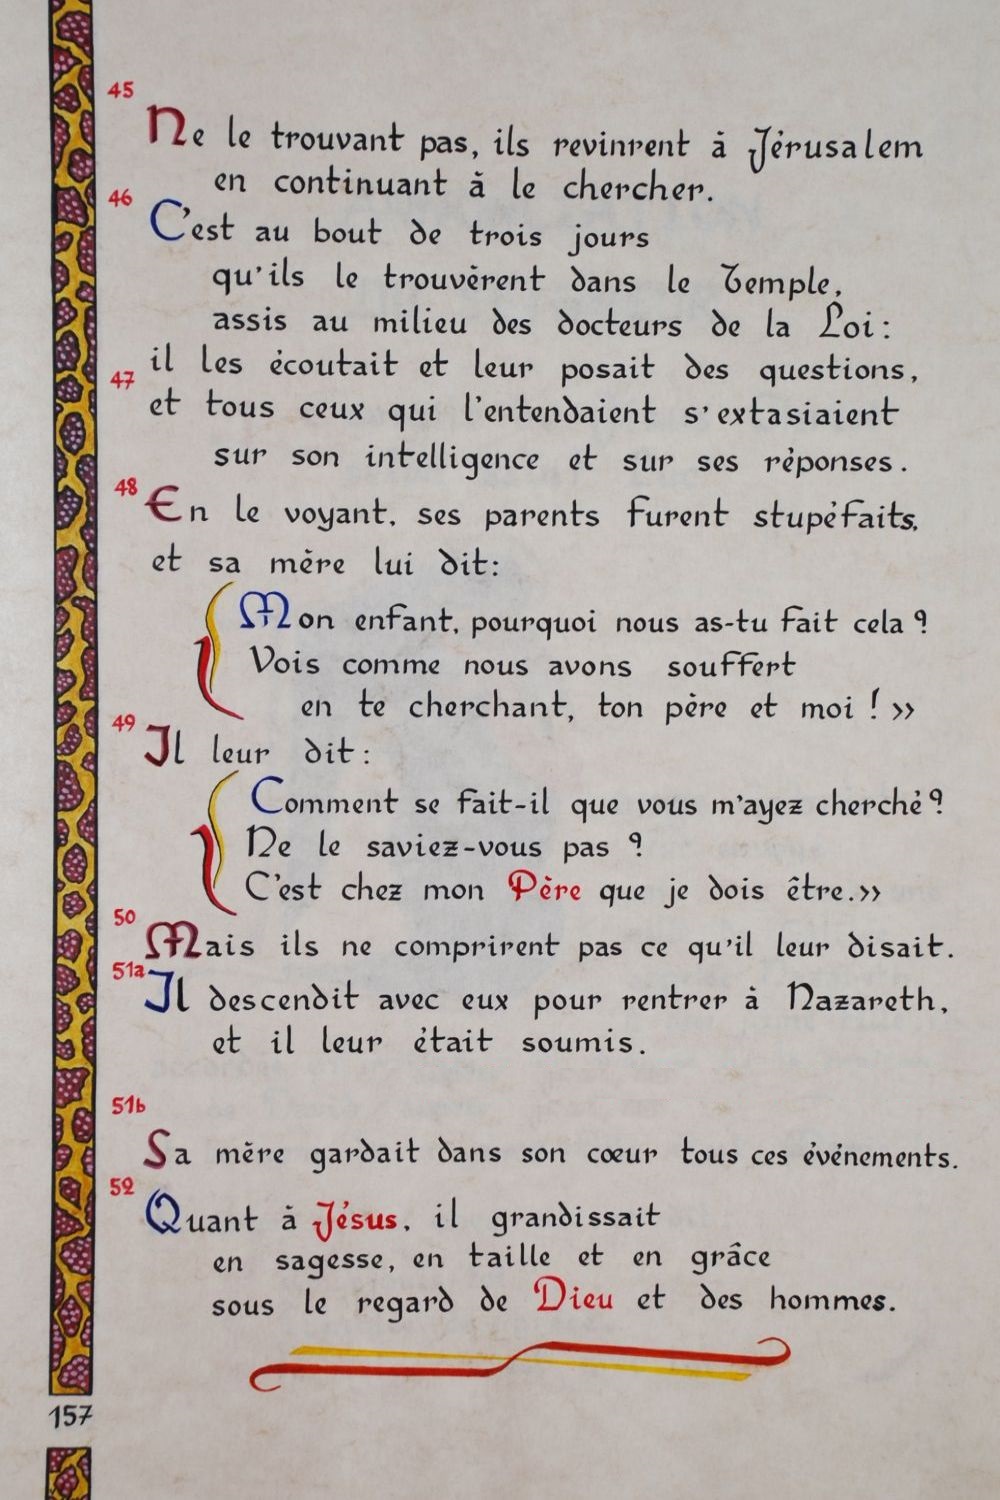 45
Ne le trouvant pas, ils revinrent à Jérusalem
en continuant à le chercher.
46
C'est au bout de trois jours
qu'ils le trouvèrent dans le Temple,
assis au milieu des docteurs de la Loi:
il les écoutait et leur posait des questions,
47
et tous ceux qui l'entendaient s'extasiaient
sur son intelligence et sur ses réponses.
48
En le voyant, ses parents furent stupéfaits,
et sa mère lui dit:
Mon enfant, pourquoi nous as-tu fait cela ?
Vois comme nous avons souffert
en te cherchant, ton père et moi ! »
49
Il leur dit:
Comment se fait-il que vous m'ayez cherché ?
Ne le saviez-vous pas ?
C'est chez mon Père que je dois être.»
50
Mais ils ne comprirent pas ce qu'il leur disait.
51a
Il descendit avec eux pour rentrer à Nazareth,
et il leur était soumis.
51b
Sa mère gardait dans son cœur tous ces événements.
52
Quant à Jésus, il grandissait
en sagesse, en taille et en grâce
sous le regard de Dieu et des hommes.
157